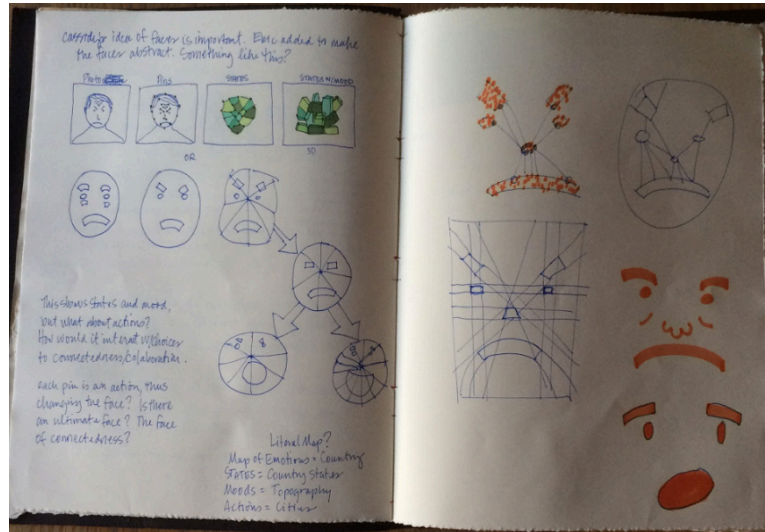 Cassidy's idea of faces is important. Eric added to make
the faces abstract. Something like this?
Photo
Pins
STATES
STATES w/MOOD
OR
3D
This shows states and mood,
but what about actions?
How would it interact w/choices
to connectedness/collaboration.
each pin is an action, thus
changing the face? Is there
an ultimate face? The face
of connectedness?
Literal Map?
Map of Emotions = Country
STATES = Country States
Moods = Topography
Actions = Cities